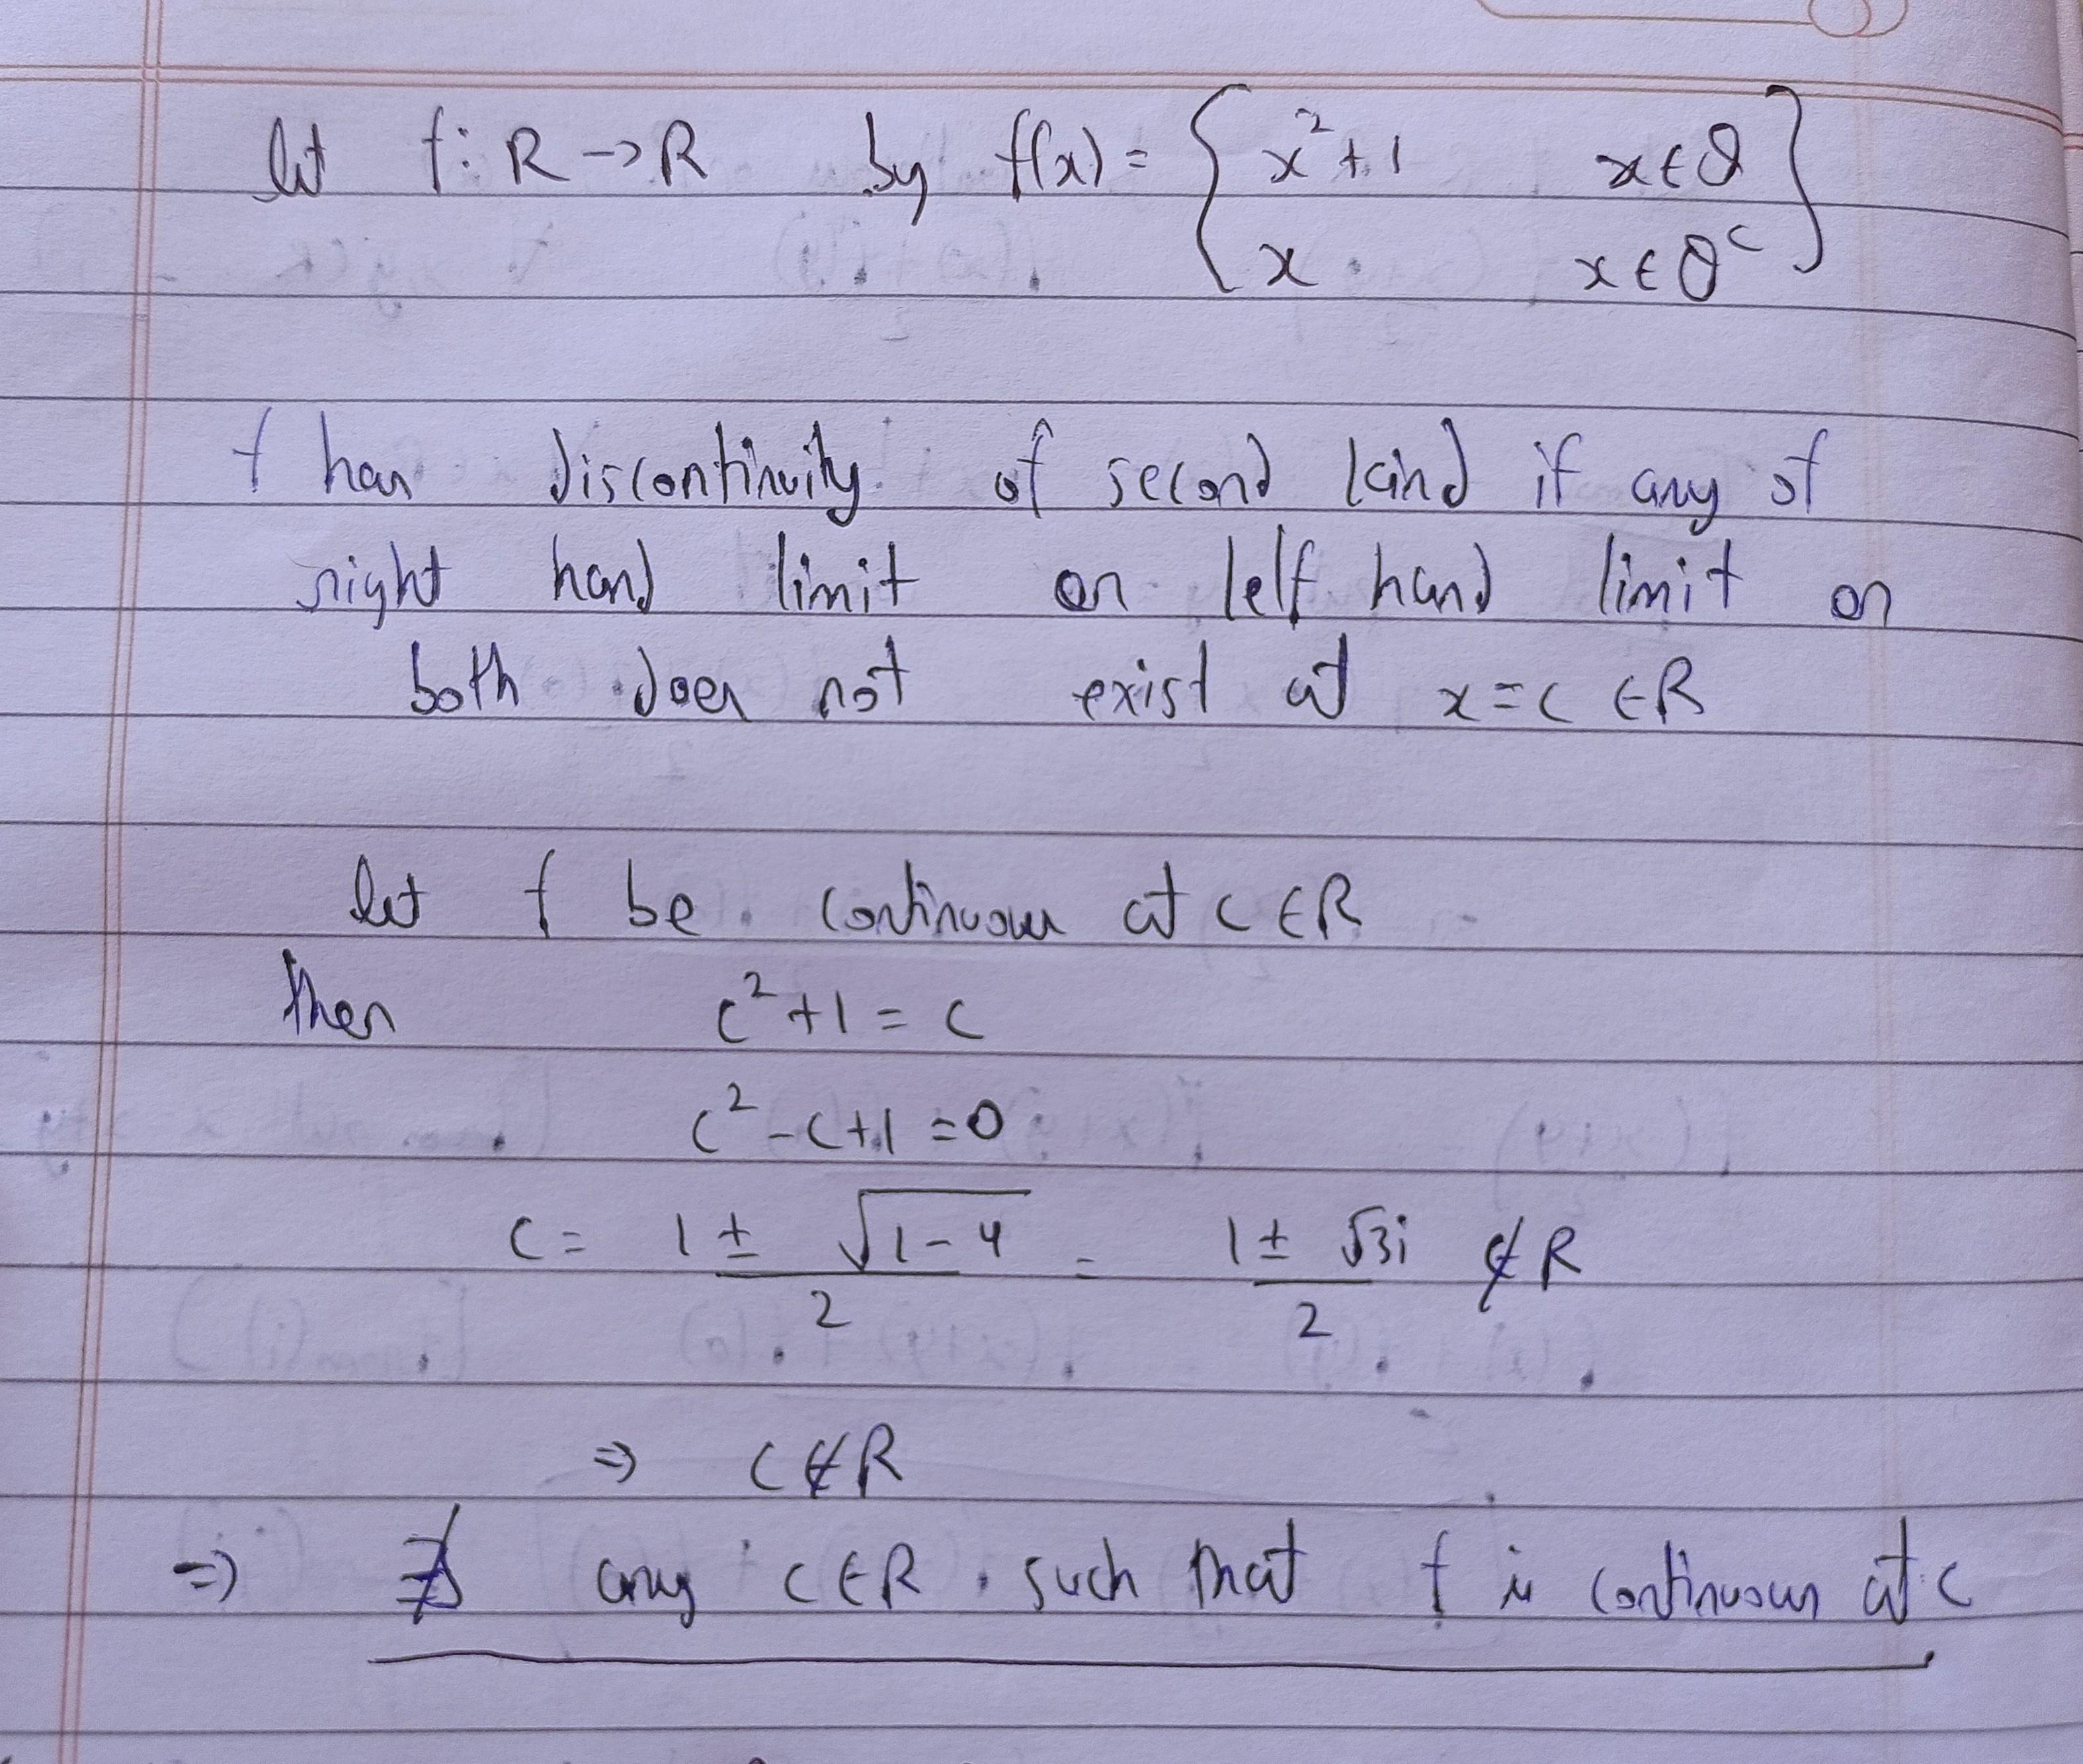 let f: R → R by f(x) = { x²+1 x ∈ Q
x x ∈ Qᶜ }
f has discontinuity of second kind if any of
right hand limit or lelf hand limit or
both does not exist at x = c ∈ R
let f be continuous at c ∈ R
then c²+1 = c
c² - c + 1 = 0
c = 1 ± √1-4 / 2 = 1 ± √3i / 2 ∉ R
⇒ c ∉ R
⇒ ∄ any c ∈ R such that f is continuous at c